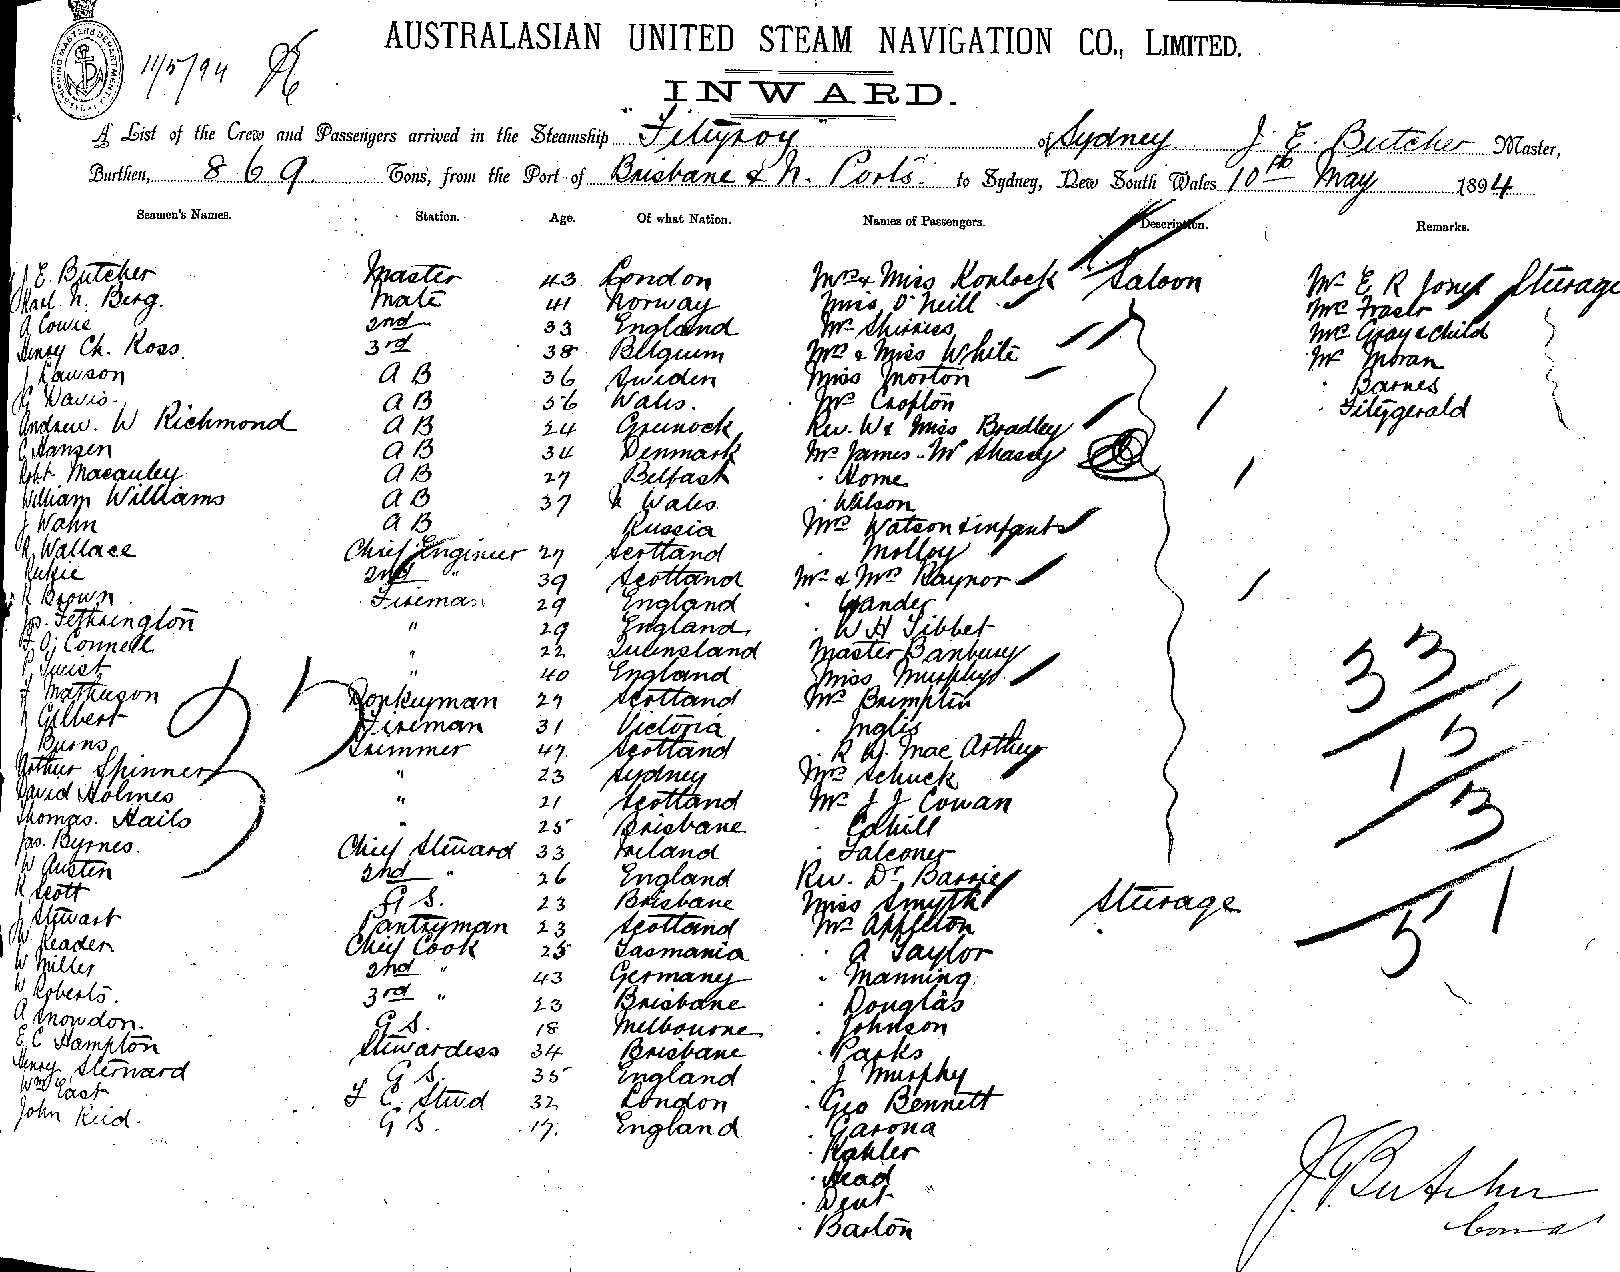 11/5/94
AUSTRALASIAN UNITED STEAM NAVIGATION CO., LIMITED.
INWARD.
A List of the Crew and Passengers arrived in the Steamship Fitzroy of Sydney J. E. Butcher Master,
Burthen, 869 Tons, from the Port of Brisbane & N. Ports. to Sydney, New South Wales 10th May 1894
Seamen's Names. Station. Age. Of what Nation. Names of Passengers. Description. Remarks.
J. E. Butcher Master 43 London Mrs & Miss Konlock Saloon Mr E R Jones Steerage
N. Berg. Mate 41 Norway Miss O'Neill Mrs Fraser
A Cowie 2nd 33 England Mr Mrs Gray & child
Henry Ch. Ross. 3rd 38 Belgium Mrs & Miss White Mr Moran
J Lawson A B 36 Sweden Miss Morton Barnes
G Davis. A B 56 Wales. Mr Crofton Fitzgerald
Andrew. W Richmond A B 24 Greenock Rev. W & Miss Bradley
C Hansen A B 34 Denmark Mr James - Mr Shasey
Robt Macauley A B 27 Belfast Home
William Williams A B 37 Wales Wilson
J Wahn A B Russia Mrs Watson & infant
R Wallace Chief Engineer 27 Scotland Molloy
2nd " 39 Scotland Mr & Mrs Raynor
R Brown Fireman 29 England Wander
Jas. Fethrington " 29 England W H Tibbet
O'Connell " 22 Queensland Master Banbury
P. Twist " 40 England Miss Murphy
J Mathieson Donkeyman 29 Scotland Mr Brimpton
J Gilbert Fireman 31 Victoria Inglis
J Burns Trimmer 47 Scotland R W. Mac Arthur
Arthur Spinner " 23 Sydney Mrs Schuck
David Holmes " 21 Scotland Mr J J Cowan
Thomas. Hails " 25 Brisbane Cahill
Jas. Byrnes. Chief Steward 33 Ireland Falconer
W Austen 2nd " 26 England Rev. Dr Barrie
R Scott G S. 23 Brisbane Miss Smyth Steerage
J Stewart Pantryman 23 Scotland Mr Appleton
W Reader Chief Cook 25 Tasmania A Taylor
W Miller 2nd " 43 Germany Manning
W Roberts. 3rd " 23 Brisbane Douglas
A Snowdon. G S. 18 Melbourne Johnson
E. C Hampton Stewardess 34 Brisbane Parks
Henry Sterward G S. 35 England J Murphy
Wm East F C. Stwd 32 London Geo Bennett
John Reid. G S. 17. England Garona
Kahler
Head
Dent
Barton
33
15
13
51
J. E. Butcher